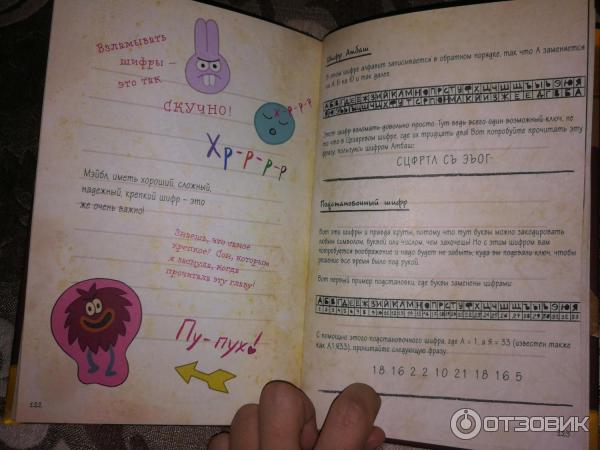 Взламывать
шифры –
это так
СКУЧНО!
Х-р-р-р
Хр-р-р-р
Мэйбл, иметь хороший, сложный,
надежный, крепкий шифр – это
же очень важно!
Знаешь, что самое
крепкое? Сон, которым
я заснула, когда
прочитала эту главу!
Пу-пух!
122
Шифр Атбаш
В этом шифре алфавит записывается в обратном порядке, так что А заменяется
на Я, Б на Ю и так далее.
АБВГДЕЁЖЗИЙКЛМНОПРСТУФХЦЧШЩЪЫЬЭЮЯ
ЯЮЭЬЫЪЩШЧЦХФУТСРПОНМЛКЙИЗЖЁЕДГВБА
Этот шифр взломать довольно просто. Тут ведь всего один возможный ключ, не
то что в Цезаревом шифре, где их тридцать два! Вот попробуйте прочитать эту
фразу, пользуясь шифром Атбаш:
СЦФРТЛ СЪ ЭЪОГ
Подстановочный шифр
Вот эти шифры и правда круты, потому что тут буквы можно закодировать
любым символом, буквой или числом, чем захочешь! Но с этим шифром вам
понадобится воображение и надо будет не забыть, куда вы подевали ключ, чтобы
решение все время было под рукой.
Вот первый пример подстановки, где буквы заменены цифрами:
АБВГДЕЁЖЗИЙКЛМНОПРСТУФХЦЧШЩЪЫЬЭЮЯ
1 2 3 4 5 6 7 8 9 10 11 12 13 14 15 16 17 18 19 20 21 22 23 24 25 26 27 28 29 30 31 32 33
С помощью этого подстановочного шифра, где А = 1, а Я = 33 (известен также
как А1Я33), прочитайте следующую фразу:
18 16 2 2 10 21 18 16 5
123
ОТЗОВИК